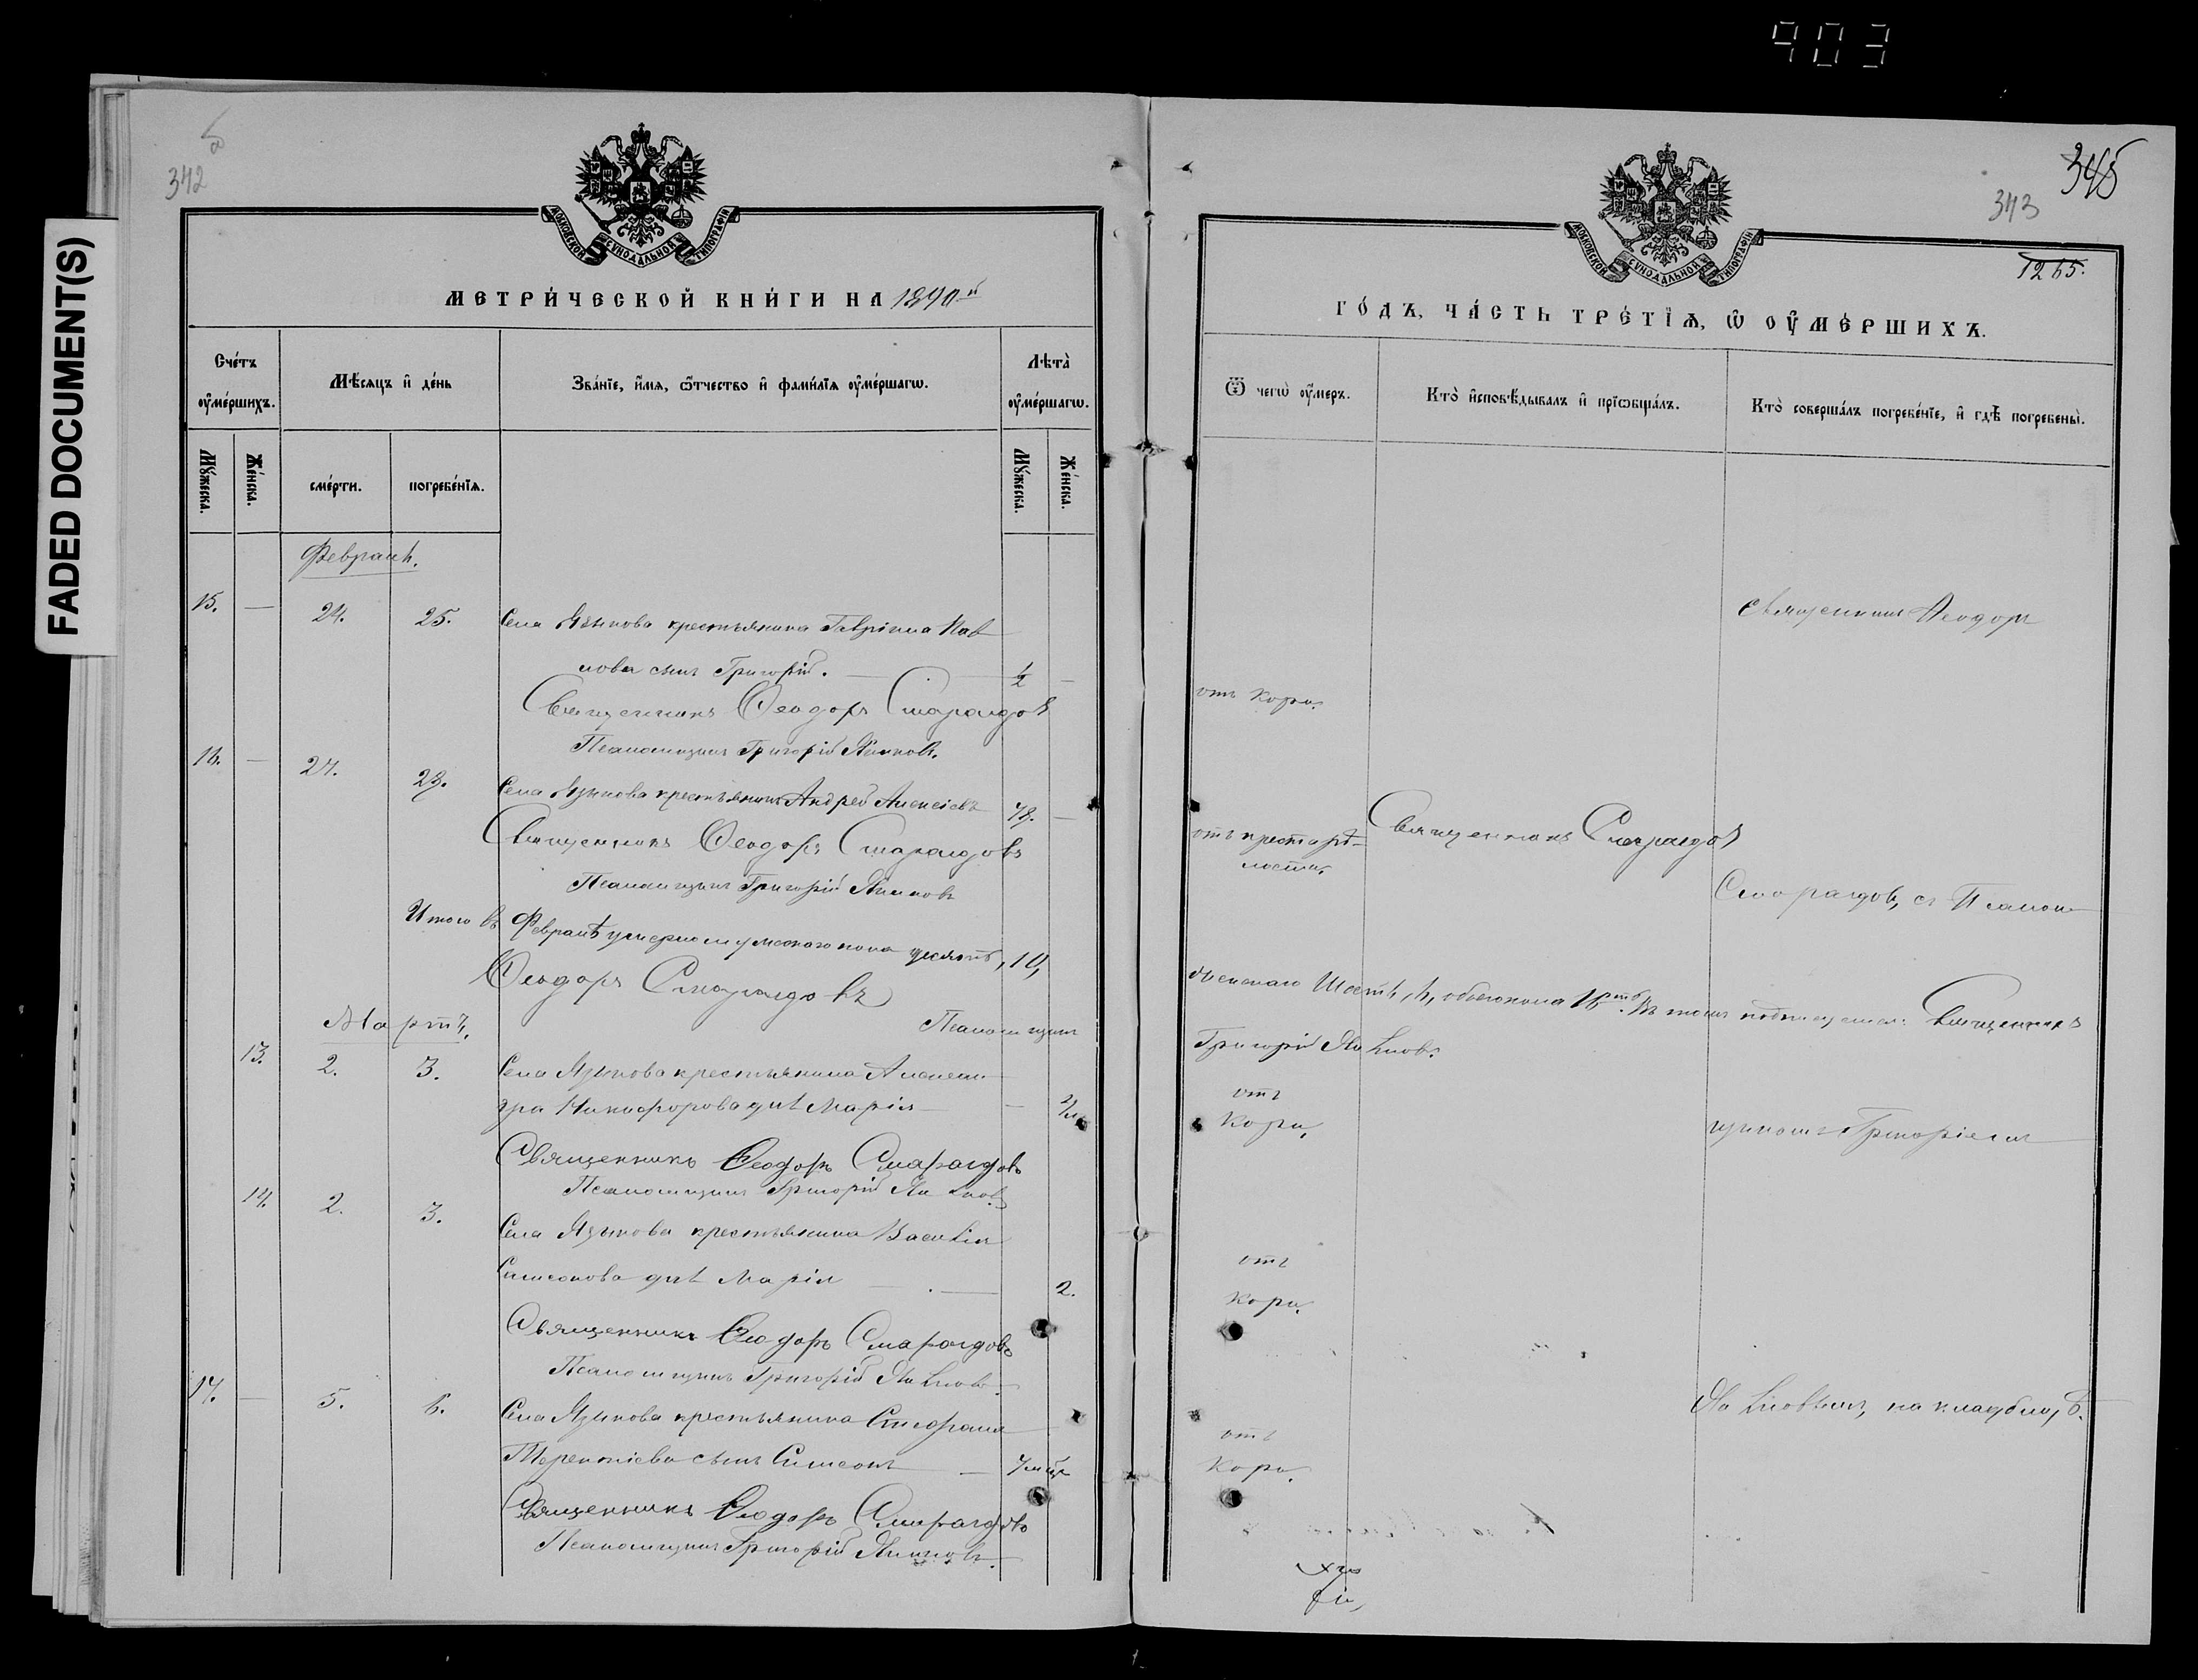 903
FADED DOCUMENT(S)
342
МОСКОВСКОЙ СУНОДАЛЬНОЙ ТИПОГРАФІИ
МЕТРИ́ЧЕСКОЙ КНИ́ГИ НА 1890й
Счéтъ ᲂу҆ме́ршихъ.
Мѣ́сяцъ и҆ де́нь
Зва́нїе, и҆́мѧ, ѻ҆́тчество и҆ фами́лїѧ ᲂу҆ме́ршагѡ.
Лѣ́та ᲂу҆ме́ршагѡ.
Мꙋ́жеска.
Же́нска.
сме́рти.
погребе́нїѧ.
Мꙋ́жеска.
Же́нска.
Февраль.
15. — 24. 25. Села Языкова крестьянина Гавріила Пав
лова сынъ Григорій. — 1/2 —
Священникъ Ѳеодоръ Смарагдовъ
Псаломщикъ Григорій Яковлевъ.
16. — 27. 28. Села Языкова крестьянинъ Андрей Алексіевъ 78. —
Священникъ Ѳеодоръ Смарагдовъ
Псаломщикъ Григорій
Итого въ Февралѣ умерло мужескаго пола десять, 10,
Ѳеодоръ Смарагдовъ
Псаломщикъ
Мартъ.
13. 2. 3. Села Языкова крестьянина Алексан
дра Никифорова дочь Марія — —
Священникъ Ѳеодоръ Смарагдовъ
Псаломщикъ Григорій
14. 2. 3. Села Языкова крестьянина Василія
Симеонова дочь Марія — 2.
Священникъ Ѳеодоръ Смарагдовъ
Псаломщикъ Григорій
17. — 5. 6. Села Языкова крестьянина Стефана
Терентіева сынъ Симеонъ — 7 мѣс
Священникъ Ѳеодоръ Смарагдовъ
Псаломщикъ Григорій
345
343
1265.
МОСКОВСКОЙ СУНОДАЛЬНОЙ ТИПОГРАФІИ
ГО́ДЪ, ЧА́СТЬ ТРЕ́ТЇѦ, Ѡ҆ ОУ҆МЕ́РШИХЪ.
Ѿ чегѡ̀ ᲂу҆́меръ.
Кто̀ и҆сповѣ́дывалъ и҆ прїѡбща́лъ.
Кто̀ соверша́лъ погребе́нїе, и҆ гдѣ̀ погребены̀.
Священникъ Ѳеодоръ
отъ кори.
отъ престарѣ-
лости,
Священникъ Смарагдовъ
Смарагдовъ, съ Псалом
женскаго Шесть, 6, обоего пола 16ть. Въ томъ подписуемся: Священникъ
Григорій
отъ
кори,
щикомъ Григоріемъ
отъ
кори.
на кладбищѣ.
отъ
кори.